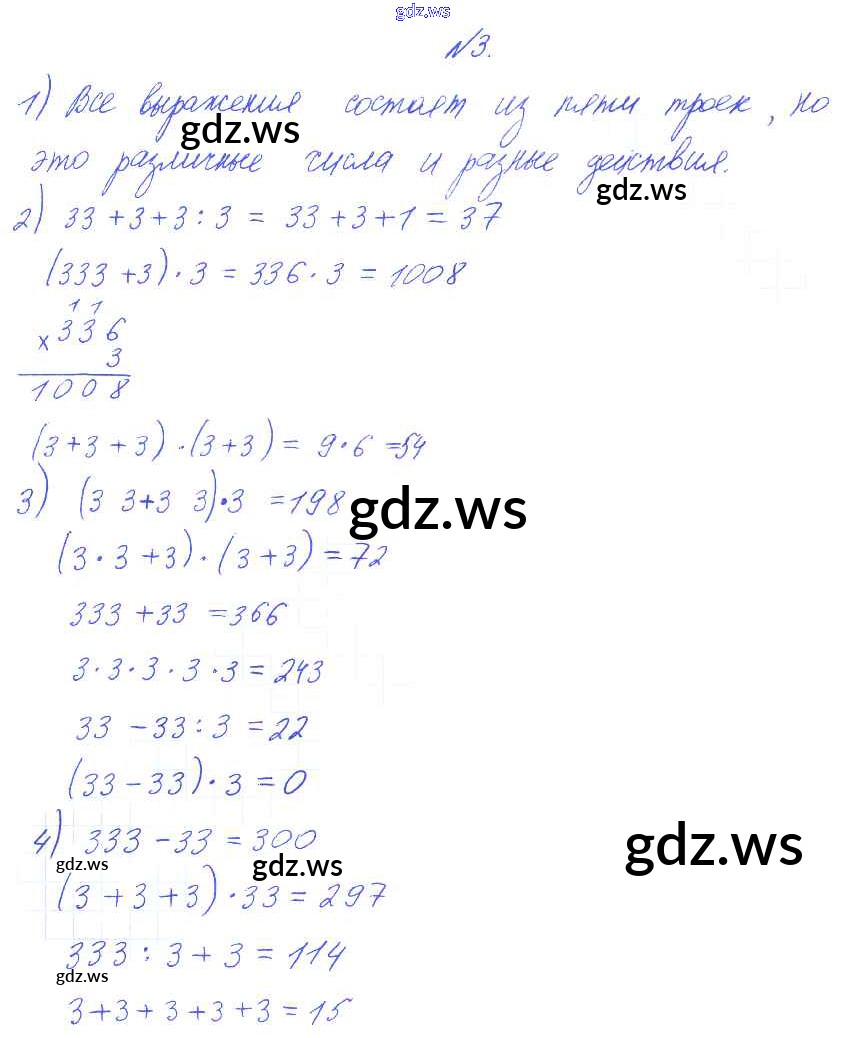 gdz.ws
№3.
1) Все выражения состоят из пяти троек, но
gdz.ws
это различные числа и разные действия.
gdz.ws
2) 33 + 3 + 3 : 3 = 33 + 3 + 1 = 37
(333 + 3) · 3 = 336 · 3 = 1008
1 1
× 336
3
1008
(3 + 3 + 3) · (3 + 3) = 9 · 6 = 54
3) (3 3 + 3 3) · 3 = 198
gdz.ws
(3 · 3 + 3) · (3 + 3) = 72
333 + 33 = 366
3 · 3 · 3 · 3 · 3 = 243
33 - 33 : 3 = 22
(33 - 33) · 3 = 0
4) 333 - 33 = 300
gdz.ws
gdz.ws
gdz.ws
(3 + 3 + 3) · 33 = 297
333 : 3 + 3 = 114
gdz.ws
3 + 3 + 3 + 3 + 3 = 15